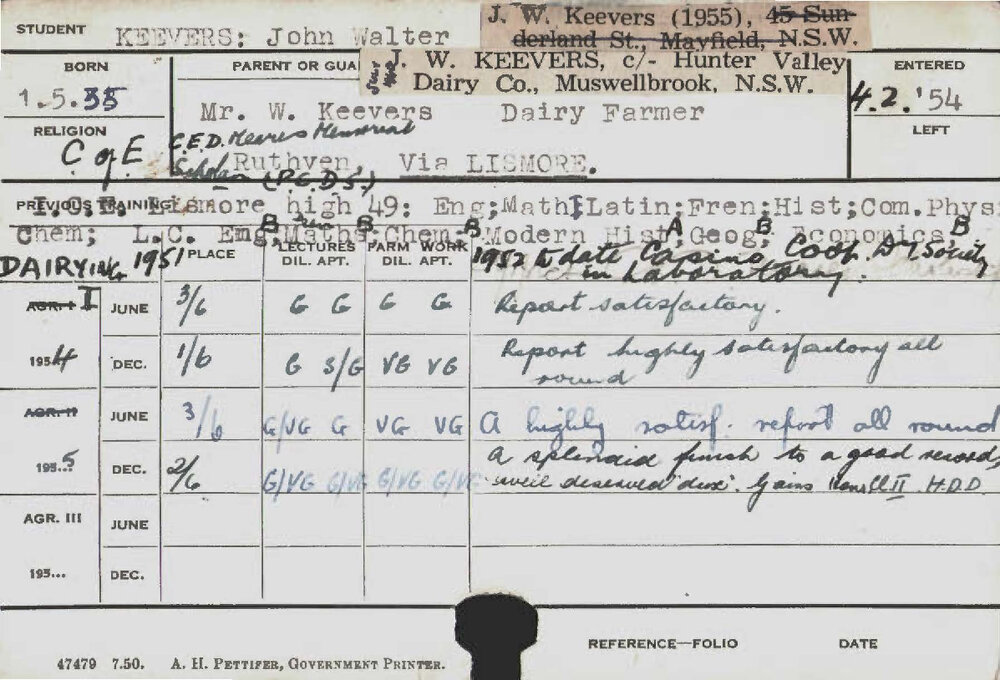 STUDENT KEEVERS: John Walter
J. W. Keevers (1955), 45 Sun-
derland St., Mayfield, N.S.W.
J. W. KEEVERS, c/- Hunter Valley
Dairy Co., Muswellbrook, N.S.W.
BORN PARENT OR GUA ENTERED
1.5.35 Mr. W. Keevers Dairy Farmer 4.2.'54
RELIGION LEFT
C of E C.E.D. Meares Memorial
Scholar Ruthven, Via LISMORE.
(P.C.D.S.)
PREVIOUS TRAINING Lismore high 49: Eng; Math I; Latin; Fren; Hist; Com. Phys
Chem; L.C. Eng B Maths B Chem B Modern Hist A Geog B Economics B
DAIRYING 1951 PLACE LECTURES FARM WORK 1952 to date Casino Coop. Dy Society
DIL. APT. DIL. APT. in Laboratory.
AGR. I I JUNE 3/6 G G G G Report satisfactory.
1954 DEC. 1/6 G S/G VG VG Report highly satisfactory all
round
AGR. II JUNE 3/6 G/VG G VG VG A highly satisf. report all round
1955 DEC. 2/6 G/VG G/VG G/VG G/VG A splendid finish to a good record,
well deserved 'dux'. Gains II H.D.D
AGR. III JUNE
195... DEC.
REFERENCE—FOLIO DATE
47479 7.50. A. H. PETTIFER, GOVERNMENT PRINTER.